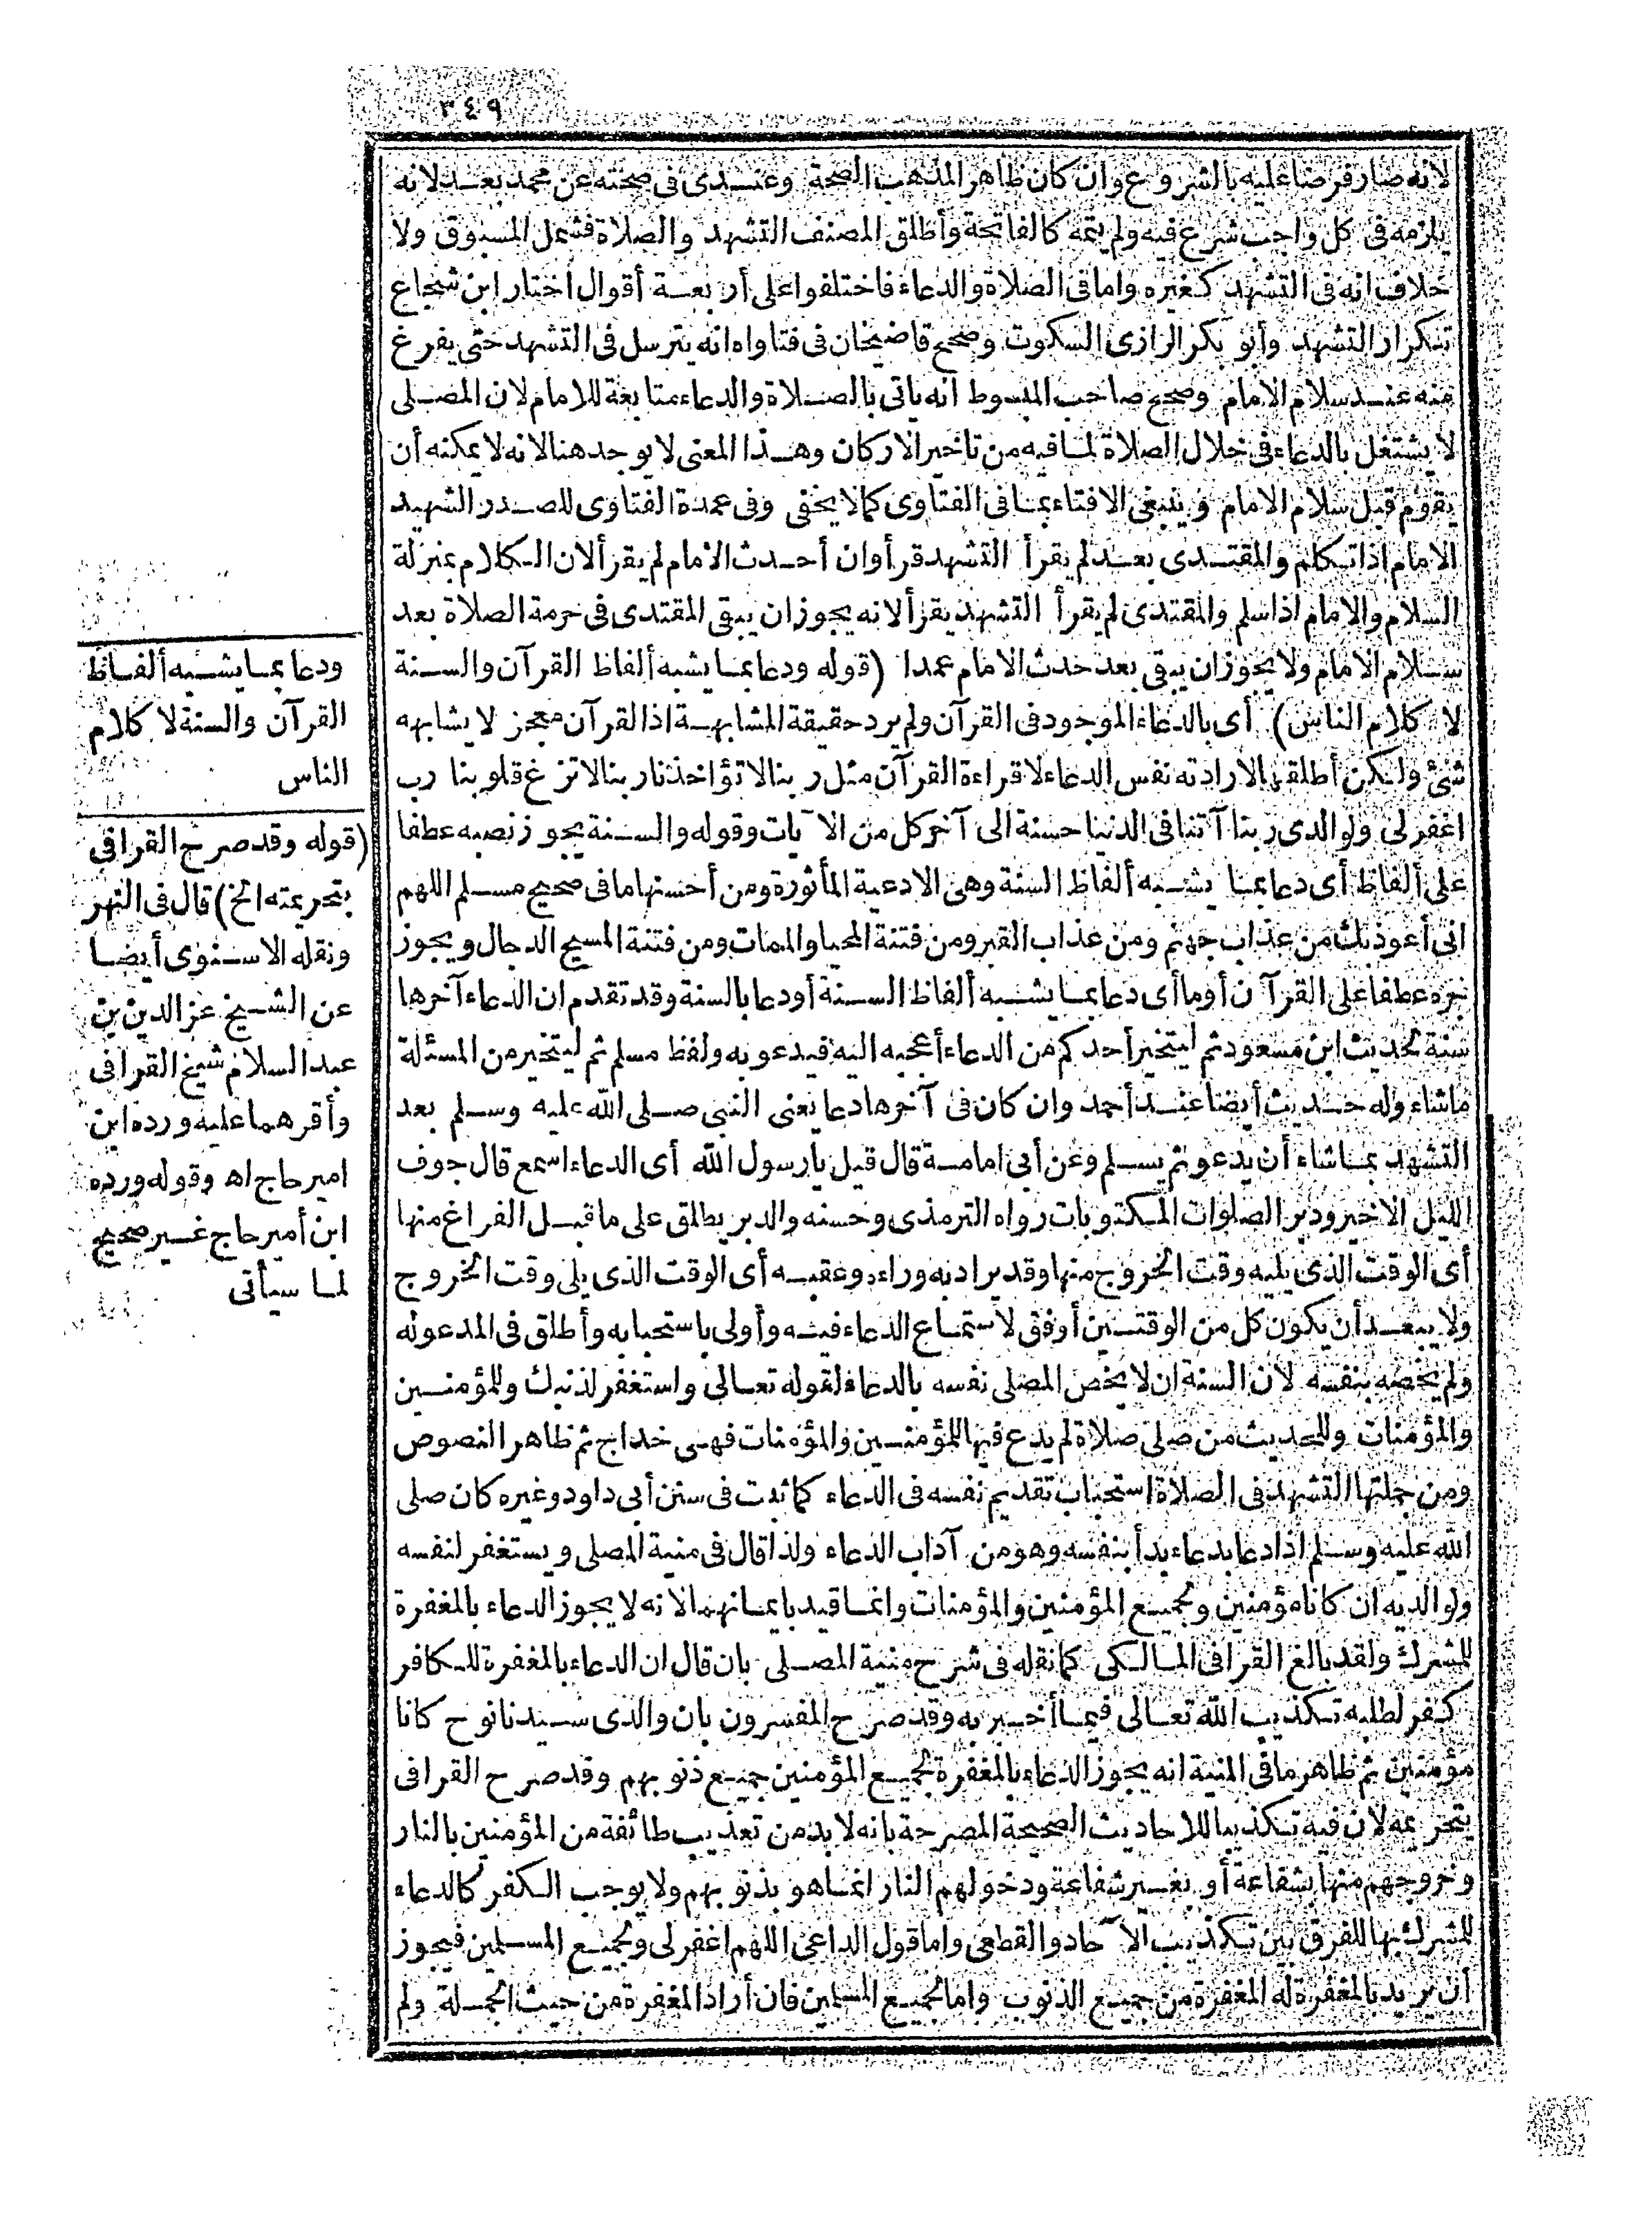 ٣٤٩
لانه صار فرضا عليه بالشروع وان كان ظاهر المذهب الصحة وعندى فى صحته عن محمد بعد لانه
يلزمه فى كل واجب شرع فيه ولم يتمه كالفاتحة وأطلق المصنف التشهد والصلاة فشمل المسبوق ولا
خلاف انه فى التشهد كغيره واما فى الصلاة والدعاء فاختلفوا على أربعة أقوال اختار ابن شجاع
تكرار التشهد وأبو بكر الرازى السكوت وصحح قاضيخان فى فتاواه انه يترسل فى التشهد حتى يفرغ
منه عند سلام الامام وصحح صاحب المبسوط انه ياتى بالصلاة والدعاء متابعة للامام لان المصلى
لا يشتغل بالدعاء فى خلال الصلاة لما فيه من تاخير الاركان وهذا المعنى لا يوجد هنا لانه لا يمكنه أن
يقوم قبل سلام الامام وينبغى الافتاء بما فى الفتاوى كما لا يخفى وفى عمدة الفتاوى للصدر الشهيد
الامام اذا تكلم والمقتدى بعد لم يقرأ التشهد قرأ وان أحدث الامام لم يقرأ لان الكلام بمنزلة
السلام والامام اذا سلم والمقتدى لم يقرأ التشهد يقرأ لانه يجوز ان يبقى المقتدى فى حرمة الصلاة بعد
سلام الامام ولا يجوز ان يبقى بعد حدث الامام عمدا (قوله ودعا بما يشبه ألفاظ القرآن والسنة
لا كلام الناس) أى بالدعاء الموجود فى القرآن ولم يرد حقيقة المشابهة اذ القرآن معجز لا يشابهه
شئ ولكن أطلقها لارادته نفس الدعاء لا قراءة القرآن مثل ربنا لا تؤاخذنا ربنا لا تزغ قلوبنا رب
اغفر لى ولوالدى ربنا آتنا فى الدنيا حسنة الى آخر كل من الآيات وقوله والسنة يجوز نصبه عطفا
على ألفاظ أى دعا بما يشبه ألفاظ السنة وهى الادعية المأثورة ومن أحسنها ما فى صحيح مسلم اللهم
انى أعوذ بك من عذاب جهنم ومن عذاب القبر ومن فتنة المحيا والممات ومن فتنة المسيح الدجال ويجوز
جره عطفا على القرآن أو ما أى دعا بما يشبه ألفاظ السنة أو دعا بالسنة وقد تقدم ان الدعاء آخرها
سنة لحديث ابن مسعود ثم ليتخير أحدكم من الدعاء أعجبه اليه فيدعو به ولفظ مسلم ثم ليتخير من المسئلة
ما شاء وله حديث أيضا عند أحمد وان كان فى آخرها دعا يعنى النبى صلى الله عليه وسلم بعد
التشهد بما شاء أن يدعو ثم يسلم وعن أبى امامة قال قيل يا رسول الله أى الدعاء اسمع قال جوف
الليل الاخير ودبر الصلوات المكتوبات رواه الترمذى وحسنه والدبر يطلق على ما قبل الفراغ منها
أى الوقت الذى يليه وقت الخروج منها وقد يراد به وراءه وعقبه أى الوقت الذى يلى وقت الخروج
ولا يبعد أن يكون كل من الوقتين أوفق لاستماع الدعاء فيه وأولى باستحبابه وأطلق فى المدعو له
ولم يخصه بنفسه لان السنة ان لا يخص المصلى نفسه بالدعاء لقوله تعالى واستغفر لذنبك وللمؤمنين
والمؤمنات وللحديث من صلى صلاة لم يدع فيها للمؤمنين والمؤمنات فهى خداج ثم ظاهر النصوص
ومن جملتها التشهد فى الصلاة استحباب تقديم نفسه فى الدعاء كما ثبت فى سنن أبى داود وغيره كان صلى
الله عليه وسلم اذا دعا بدعاء بدأ بنفسه وهو من آداب الدعاء ولذا قال فى منية المصلى ويستغفر لنفسه
ولوالديه ان كانا مؤمنين ولجميع المؤمنين والمؤمنات وانما قيد بايمانهما لانه لا يجوز الدعاء بالمغفرة
للمشرك ولقد بالغ القرافى المالكى كما نقله فى شرح منية المصلى بان قال ان الدعاء بالمغفرة للكافر
كفر لطلبه تكذيب الله تعالى فيما أخبر به وقد صرح المفسرون بان والدى سيدنا نوح كانا
مؤمنين ثم ظاهر ما فى المنية انه يجوز الدعاء بالمغفرة لجميع المؤمنين جميع ذنوبهم وقد صرح القرافى
بتحريمه لان فيه تكذيبا للاحاديث الصحيحة المصرحة بانه لا بد من تعذيب طائفة من المؤمنين بالنار
وخروجهم منها بشفاعة أو بغير شفاعة ودخولهم النار انما هو بذنوبهم ولا يوجب الكفر كالدعاء
للمشرك بها للفرق بين تكذيب الآحاد والقطعى واما قول الداعى اللهم اغفر لى ولجميع المسلمين فيجوز
أن يريد بالمغفرة له المغفرة من جميع الذنوب واما لجميع المسلمين فان أراد المغفرة من حيث الجملة ولم
ودعا بما يشبه ألفاظ
القرآن والسنة لا كلام
الناس
(قوله وقد صرح القرافى
بتحريمته الخ) قال فى النهر
ونقله الاسنوى أيضا
عن الشيخ عز الدين بن
عبد السلام شيخ القرافى
وأقرهما عليه ورده ابن
امير حاج اه وقوله ورده
ابن أمير حاج غير صحيح
لما سيأتى